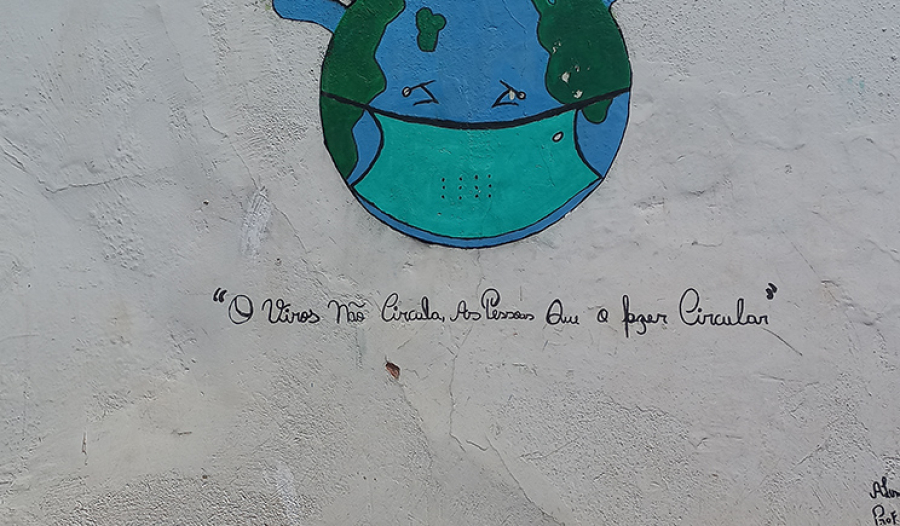 "O Viros Não Circula, As Pessoas Que o fazer Circular"
Prof